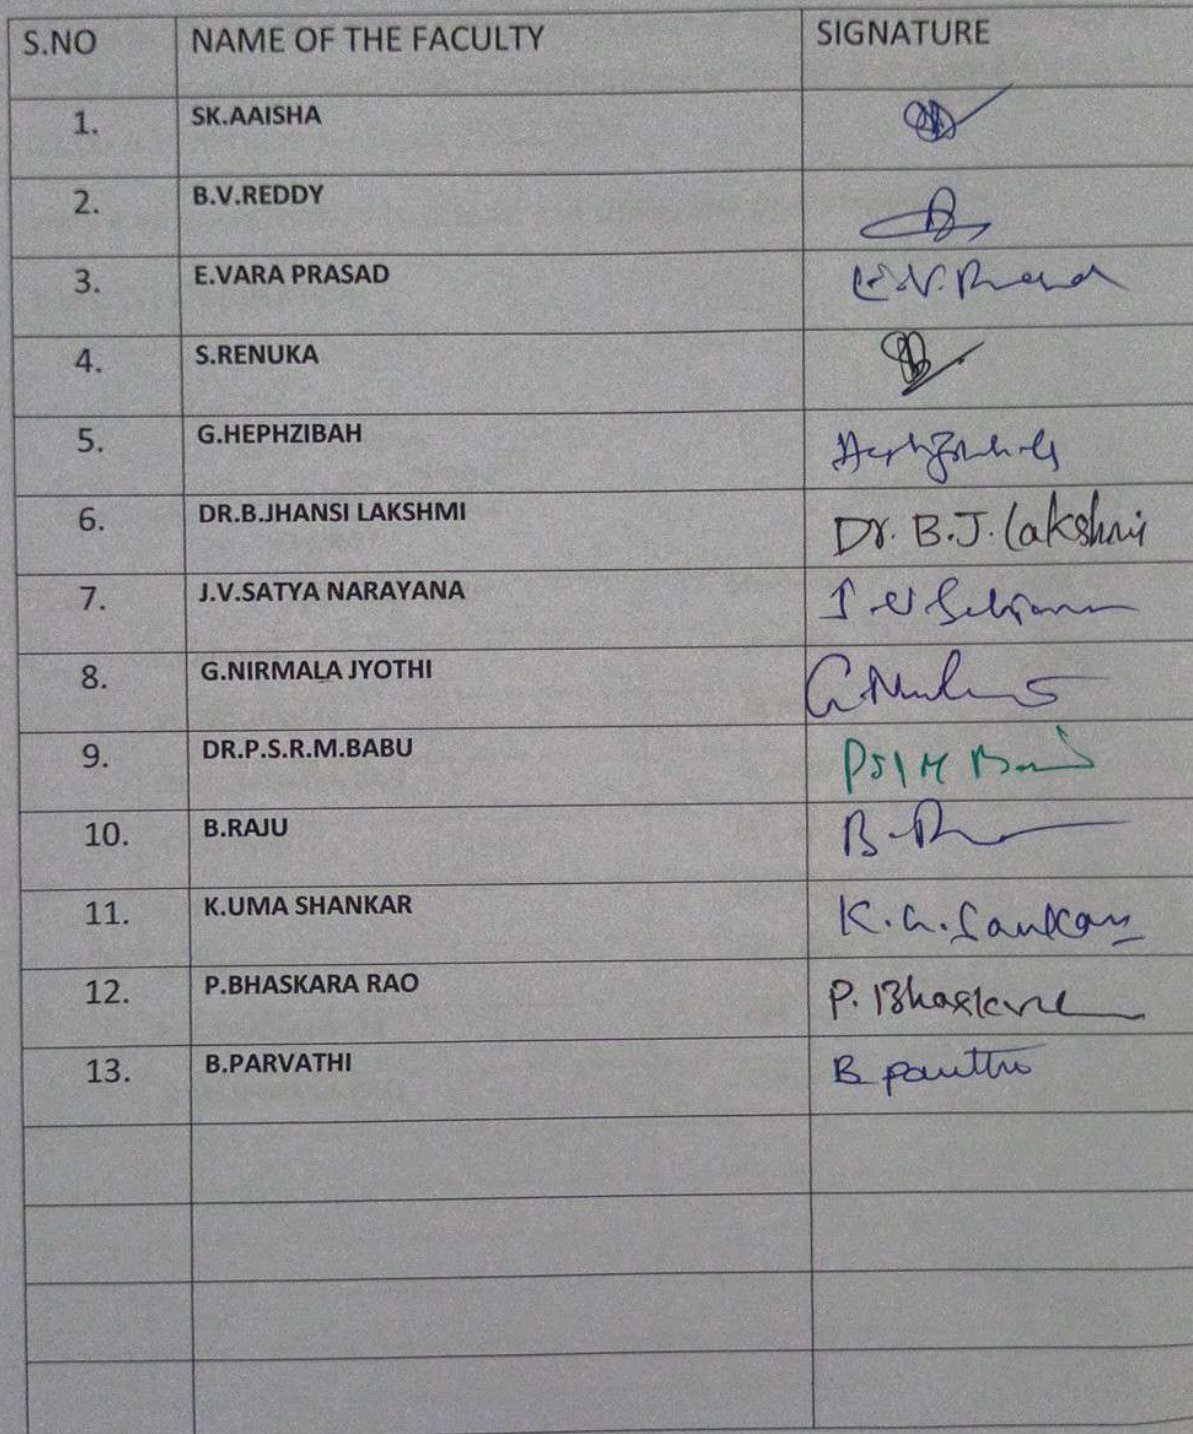 S.NO NAME OF THE FACULTY SIGNATURE
1. SK.AAISHA
2. B.V.REDDY
3. E.VARA PRASAD
4. S.RENUKA
5. G.HEPHZIBAH
6. DR.B.JHANSI LAKSHMI Dr. B.J. Lakshmi
7. J.V.SATYA NARAYANA
8. G.NIRMALA JYOTHI
9. DR.P.S.R.M.BABU
10. B.RAJU
11. K.UMA SHANKAR
12. P.BHASKARA RAO P. Bhaskara
13. B.PARVATHI